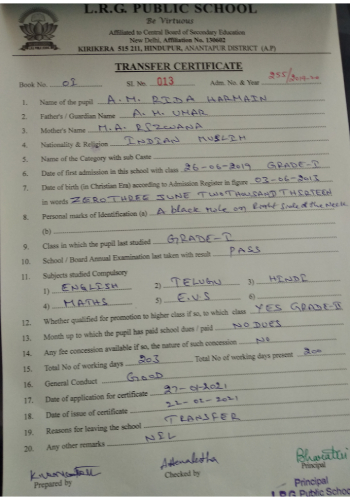 L.R.G. PUBLIC SCHOOL
Be Virtuous
Affiliated to Central Board of Secondary Education
New Delhi, Affiliation No. 130602
KIRIKERA 515 211, HINDUPUR, ANANTAPUR DISTRICT (A.P)
TRANSFER CERTIFICATE
Book No. 02 Sl. No. 013 Adm. No. & Year 255/2019-20
1. Name of the pupil A.M. RIDA HARMAIN
2. Father's / Guardian Name A.H. UMAR
3. Mother's Name M.A. RIZWANA
4. Nationality & Religion INDIAN MUSLIM
5. Name of the Category with sub Caste
6. Date of first admission in this school with class 26-06-2019 GRADE-I
7. Date of birth (in Christian Era) according to Admission Register in figure 03-06-2013
in words ZERO THREE JUNE TWOTHOUSAND THIRTEEN
8. Personal marks of Identification (a) A black mole on Right side of the Neck.
(b)
9. Class in which the pupil last studied GRADE-I
10. School / Board Annual Examination last taken with result PASS
11. Subjects studied Compulsory
1) ENGLISH 2) TELUGU 3) HINDI
4) MATHS 5) E.V.S 6)
12. Whether qualified for promotion to higher class if so, to which class YES GRADE-II
13. Month up to which the pupil has paid school dues / paid NO DUES
14. Any fee concession available if so, the nature of such concession NO
15. Total No of working days 203 Total No of working days present 200
16. General Conduct GOOD
17. Date of application for certificate 27-01-2021
18. Date of issue of certificate 22-02-2021
19. Reasons for leaving the school TRANSFER
20. Any other remarks NIL
Prepared by Checked by Principal
Principal
L.R.G Public School